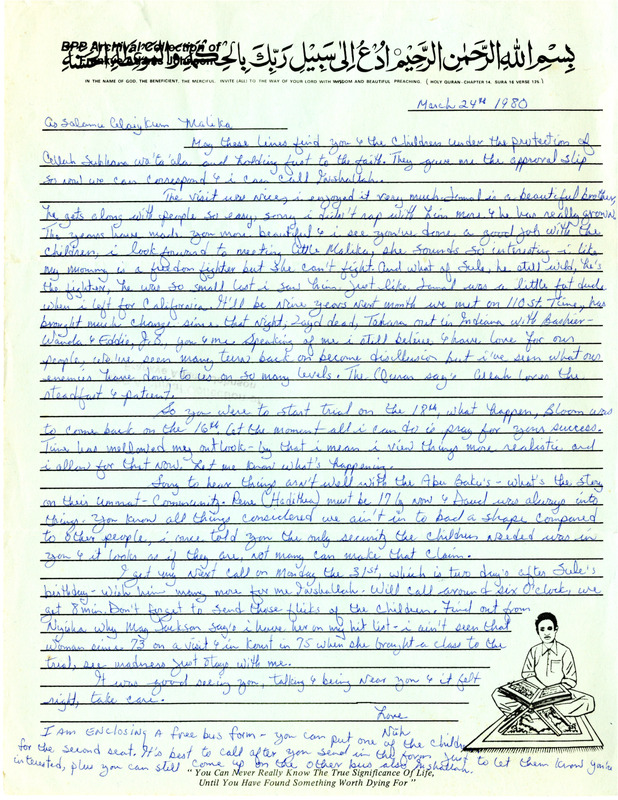 BPB Archival Collection of
بِسْمِ اللهِ الرَّحْمٰنِ الرَّحِيْمِ اُدْعُ اِلٰى سَبِيْلِ رَبِّكَ بِالْحِكْمَةِ وَالْمَوْعِظَةِ الْحَسَنَةِ
IN THE NAME OF GOD, THE BENEFICIENT, THE MERCIFUL. INVITE (ALL) TO THE WAY OF YOUR LORD WITH WISDOM AND BEAUTIFUL PREACHING. ( HOLY QURAN: CHAPTER 14, SURA 16 VERSE 125.)
March 24th 1980
As Salamu Alaiykum Malika
May these lines find you & the Children under the protection of
Allah Subhana wa'ta'ala and holding fast to the faith. They gave me the approval slip
so now we can correspond & i can call Inshallah.
The visit was nice, i enjoyed it very much. Jamal is a beautiful brother,
he gets along with people so easy, sorry i didn't rap with him more & he has really grown.
The years have made you more beautiful & i see you've done a good job with the
children, i look forward to meeting little Malika, she sounds so interesting - i like
my mommy is a freedom fighter but she can't fight. And what of Sule, he still wild, he's
the fighter, he was so small last i saw him, just like Jamal was a little fat dude
when i left for California. It'll be nine years next month we met on 110 St. Time, has
brought much change since that night, Zayd dead, in Indiana with
Wanda & Eddie, you & me. Speaking of me i still believe & have love for our
people, we've seen many turn back or become disillusion but i've seen what our
enemies have done to us on so many levels. The Quran says Allah loves the
steadfast & patient.
So you were to start trial on the 18th, what happen, Bloom was
to come back on the 16th. At the moment all i can do is pray for your success.
Time has mellowed my outlook - by that i mean i view things more realistic and
i allow for that now. Let me know what's happening.
Sorry to hear things ain't well with the Abu Bakr's - what's the story
on their Ummat - Community. must be 17 now & Daud was always into
things. You know all things considered we ain't in to bad a shape compared
to other people, i once told you the only security the children needed was in
you & it looks as if they are, not many can make that claim.
I get my next call on Monday the 31st, which is two day's after Sule's
birthday - wish him many more for me Inshallah. Will call around six O'clock, we
get 8 min. Don't forget to send those flicks of the children. Find out from
why May Jackson say's i have her on my hit list - i ain't seen that
woman since 73 on a visit & in Kourt in 75 when she brought a class to the
trial, see madness just stays with me.
It was good seeing you, talking & being near you & it felt
right, take care.
Love
Nuh
I AM ENCLOSING A free bus form - you can put one of the childre
for the second seat. It's best to call after you send in the form just to let them know you're
interested, plus you can still come up on the other bus also Inshallah.
" You Can Never Really Know The True Significance Of Life,
Until You Have Found Something Worth Dying For "